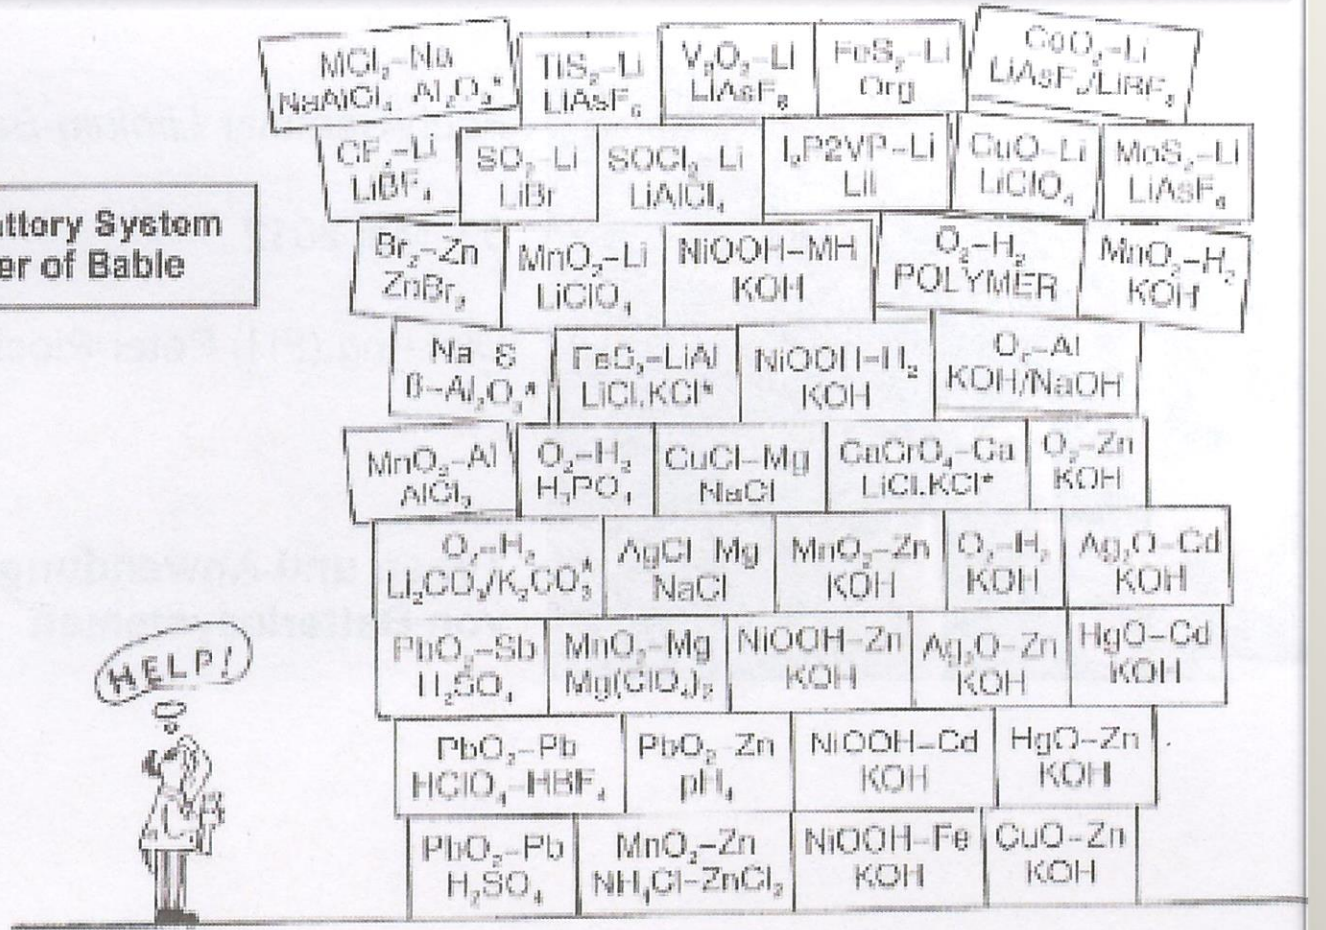 attery System
er of Bable
MCl₂–Na
NaAlCl₄ Al₂O₃*
TiS₂–Li
LiAsF₆
V₂O₅–Li
LiAsF₆
FeS₂–Li
Org
CoO₂–Li
LiAsF₆/LiBF₄
CFₓ–Li
LiBF₄
SO₂–Li
LiBr
SOCl₂–Li
LiAlCl₄
I₂P2VP–Li
LiI
CuO–Li
LiClO₄
MoS₂–Li
LiAsF₆
Br₂–Zn
ZnBr₂
MnO₂–Li
LiClO₄
NiOOH–MH
KOH
O₂–H₂
POLYMER
MnO₂–H₂
KOH
Na S
β–Al₂O₃*
FeS₂–LiAl
LiCl.KCl*
NiOOH–H₂
KOH
O₂–Al
KOH/NaOH
MnO₂–Al
AlCl₃
O₂–H₂
H₃PO₄
CuCl–Mg
NaCl
CaCrO₄–Ca
LiCl.KCl*
O₂–Zn
KOH
O₂–H₂
Li₂CO₃/K₂CO₃*
AgCl Mg
NaCl
MnO₂–Zn
KOH
O₂–H₂
KOH
Ag₂O–Cd
KOH
HELP!
PbO₂–Sb
H₂SO₄
MnO₂–Mg
Mg(ClO₄)₂
NiOOH–Zn
KOH
Ag₂O–Zn
KOH
HgO–Cd
KOH
PbO₂–Pb
HClO₄–HBF₄
PbO₂ Zn
pH₄
NiOOH–Cd
KOH
HgO–Zn
KOH
PbO₂–Pb
H₂SO₄
MnO₂–Zn
NH₄Cl–ZnCl₂
NiOOH–Fe
KOH
CuO–Zn
KOH